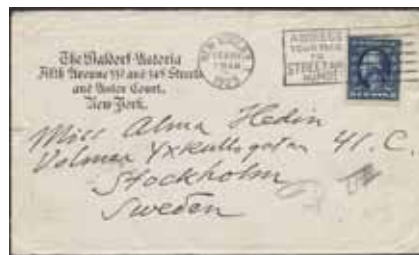 The Waldorf-Astoria
Fifth Avenue 33d and 34th Streets
and Astor Court.
New York.
NEW YORK
1923
ADDRESS
YOUR MAIL
TO
STREET AND
NUMBER
Miss Alma Hedin
Volmar Yxkullsgatan 41. C.
Stockholm
Sweden